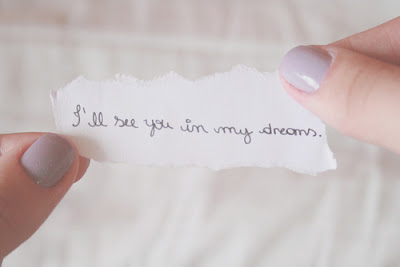 I'll see you in my dreams.